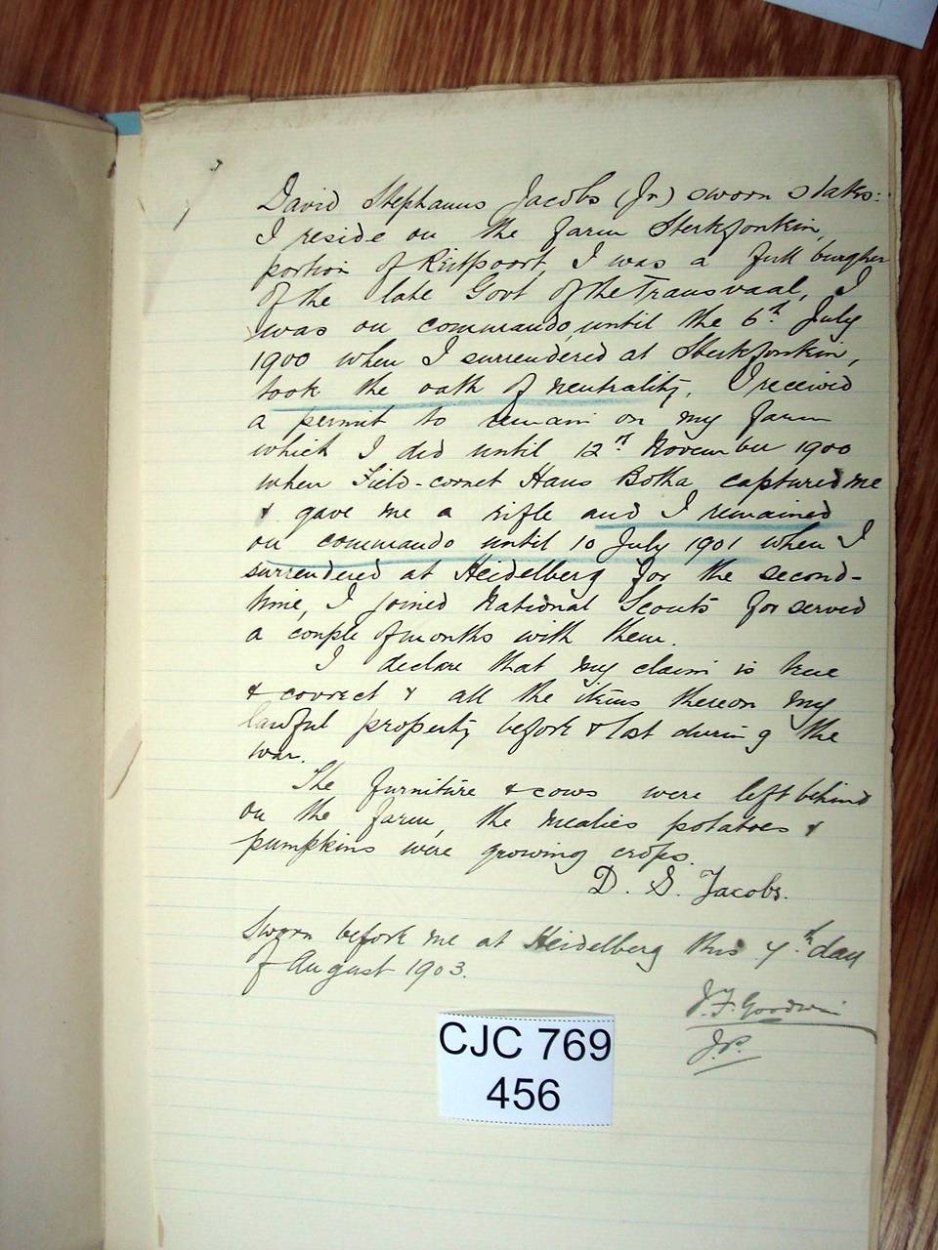 David Stephanus Jacobs (Jr) sworn states:
I reside on the farm Sterkfontein,
portion of Rietpoort, I was a full burgher
of the late Govt of the Transvaal, I
was on commando until the 6th July
1900 when I surrendered at Sterkfontein,
took the oath of neutrality, I received
a permit to remain on my farm
which I did until 12th November 1900
when Field-cornet Hans Botha captured me
& gave me a rifle and I remained
on commando until 10 July 1901 when I
surrendered at Heidelberg for the second-
time, I joined National Scouts for served
a couple of months with them.
I declare that my claim is true
& correct & all the items thereon my
lawful property before & lost during the
war.
The furniture & cows were left behind
on the farm, the mealies potatoes &
pumpkins were growing crops.
D. S. Jacobs.
Sworn before me at Heidelberg this 4th day
of August 1903.
J.F. Goodwin
J.P.
CJC 769
456